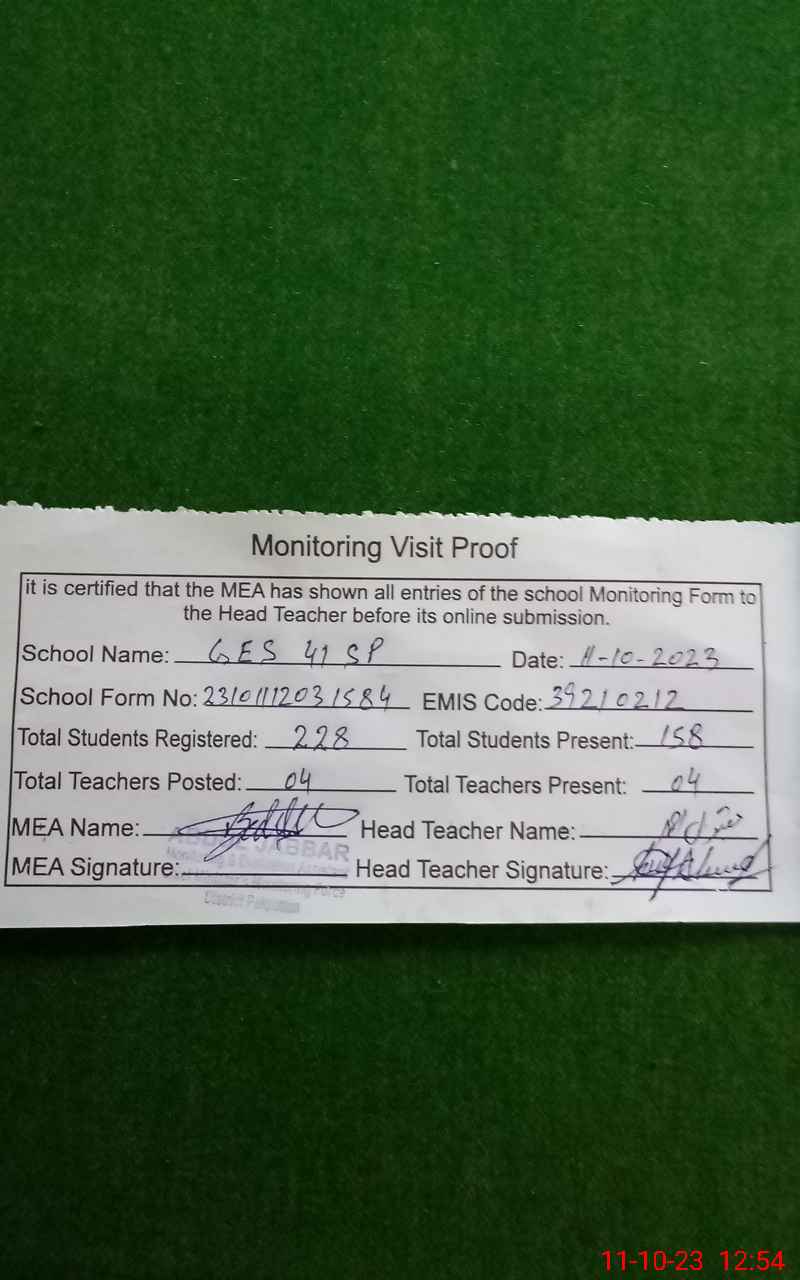 Monitoring Visit Proof
it is certified that the MEA has shown all entries of the school Monitoring Form to
the Head Teacher before its online submission.
School Name: GES 41 SP Date: 11-10-2023
School Form No: 23101112031584 EMIS Code: 39210212
Total Students Registered: 228 Total Students Present: 158
Total Teachers Posted: 04 Total Teachers Present: 04
MEA Name: Head Teacher Name:
JABBAR
MEA Signature: Head Teacher Signature:
Monitoring Force
District
11-10-23 12:54